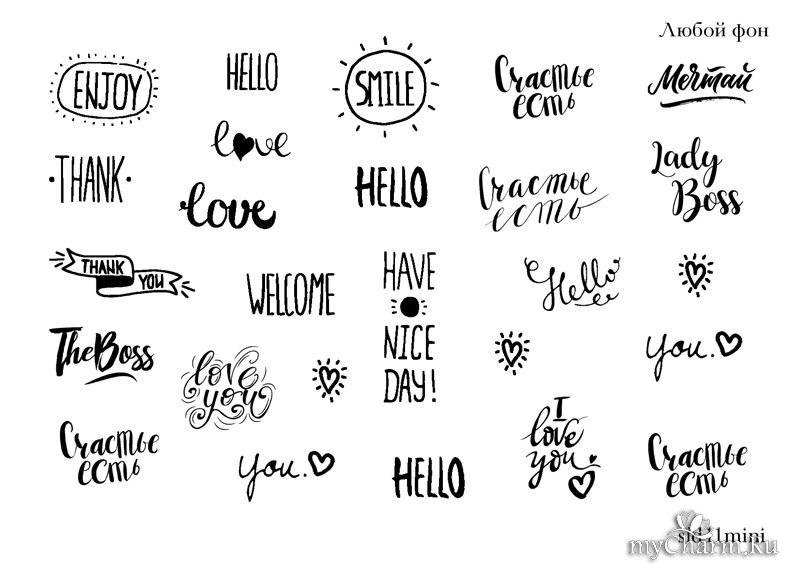 Любой фон
ENJOY
HELLO
SMILE
Счастье
есть
Мечтай
love
THANK
love
HELLO
Счастье
есть
Lady
Boss
THANK
YOU
WELCOME
HAVE
NICE
DAY!
Hello
TheBoss
love
you
you.
Счастье
есть
you.
HELLO
I
love
you
Счастье
есть
sld11mini
myCharm.ru